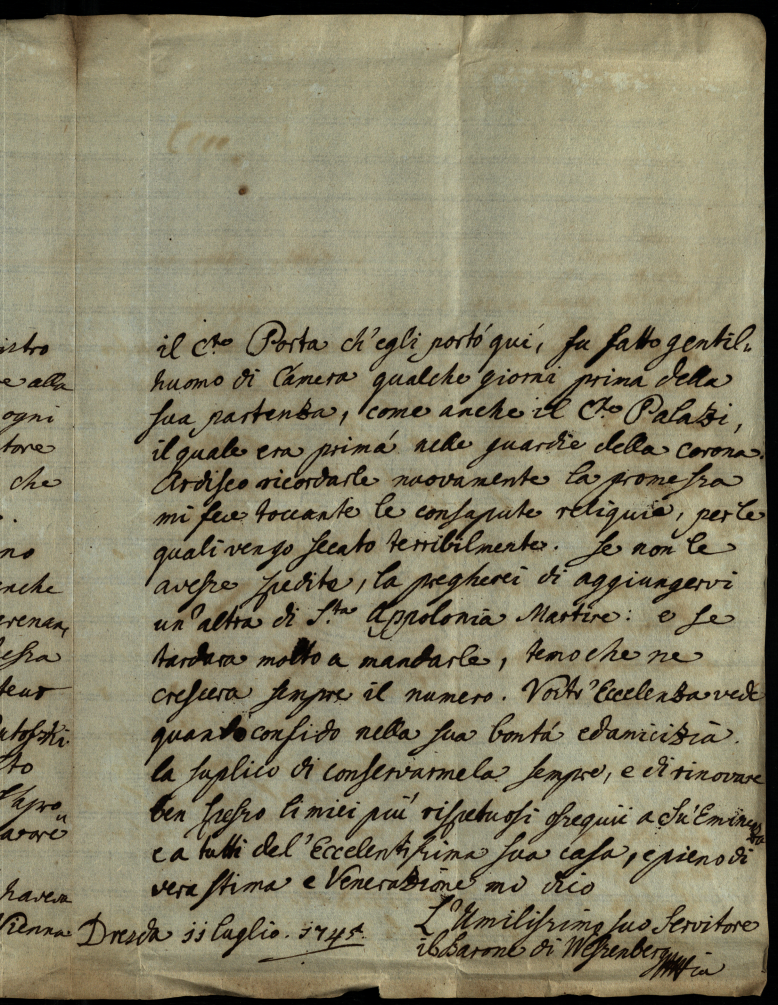 il C.te Porta ch'egli portó quí, fu fatto gentil=
huomo di Camera qualche giorni prima della
sua partenza, come anche il C.te Palazzi,
il quale era primá nelle guardie della corona.
Ardisco ricordarle nuovamente la promessa
mi fece toccante le consapute reliquie, per le
quali vengo secato terribilmente. se non le
avesse spedite, la pregherei di aggiungervi
un'altra di S.ta Appolonia Martire: e se
tardara molto a mandarle, temo che ne
crescera sempre il numero. Vostr'Eccelenza vede
quanto confido nella sua bontá ed amicizia.
la suplico di conservarmela sempre, e di rinovare
ben spesso li miei piú rispetuosi ossequii a Su'Eminenza
e a tutti del'Eccelentissima sua casa, e pieno di
vera stima e Venerazione mi dico
L'Umilissimo suo Servitore
Dresda 11 luglio. 1745
il Barone di Wessenberg
istro
e alla
ogni
tore
che
no
anche
essa
teur
sto
havera
Vienna